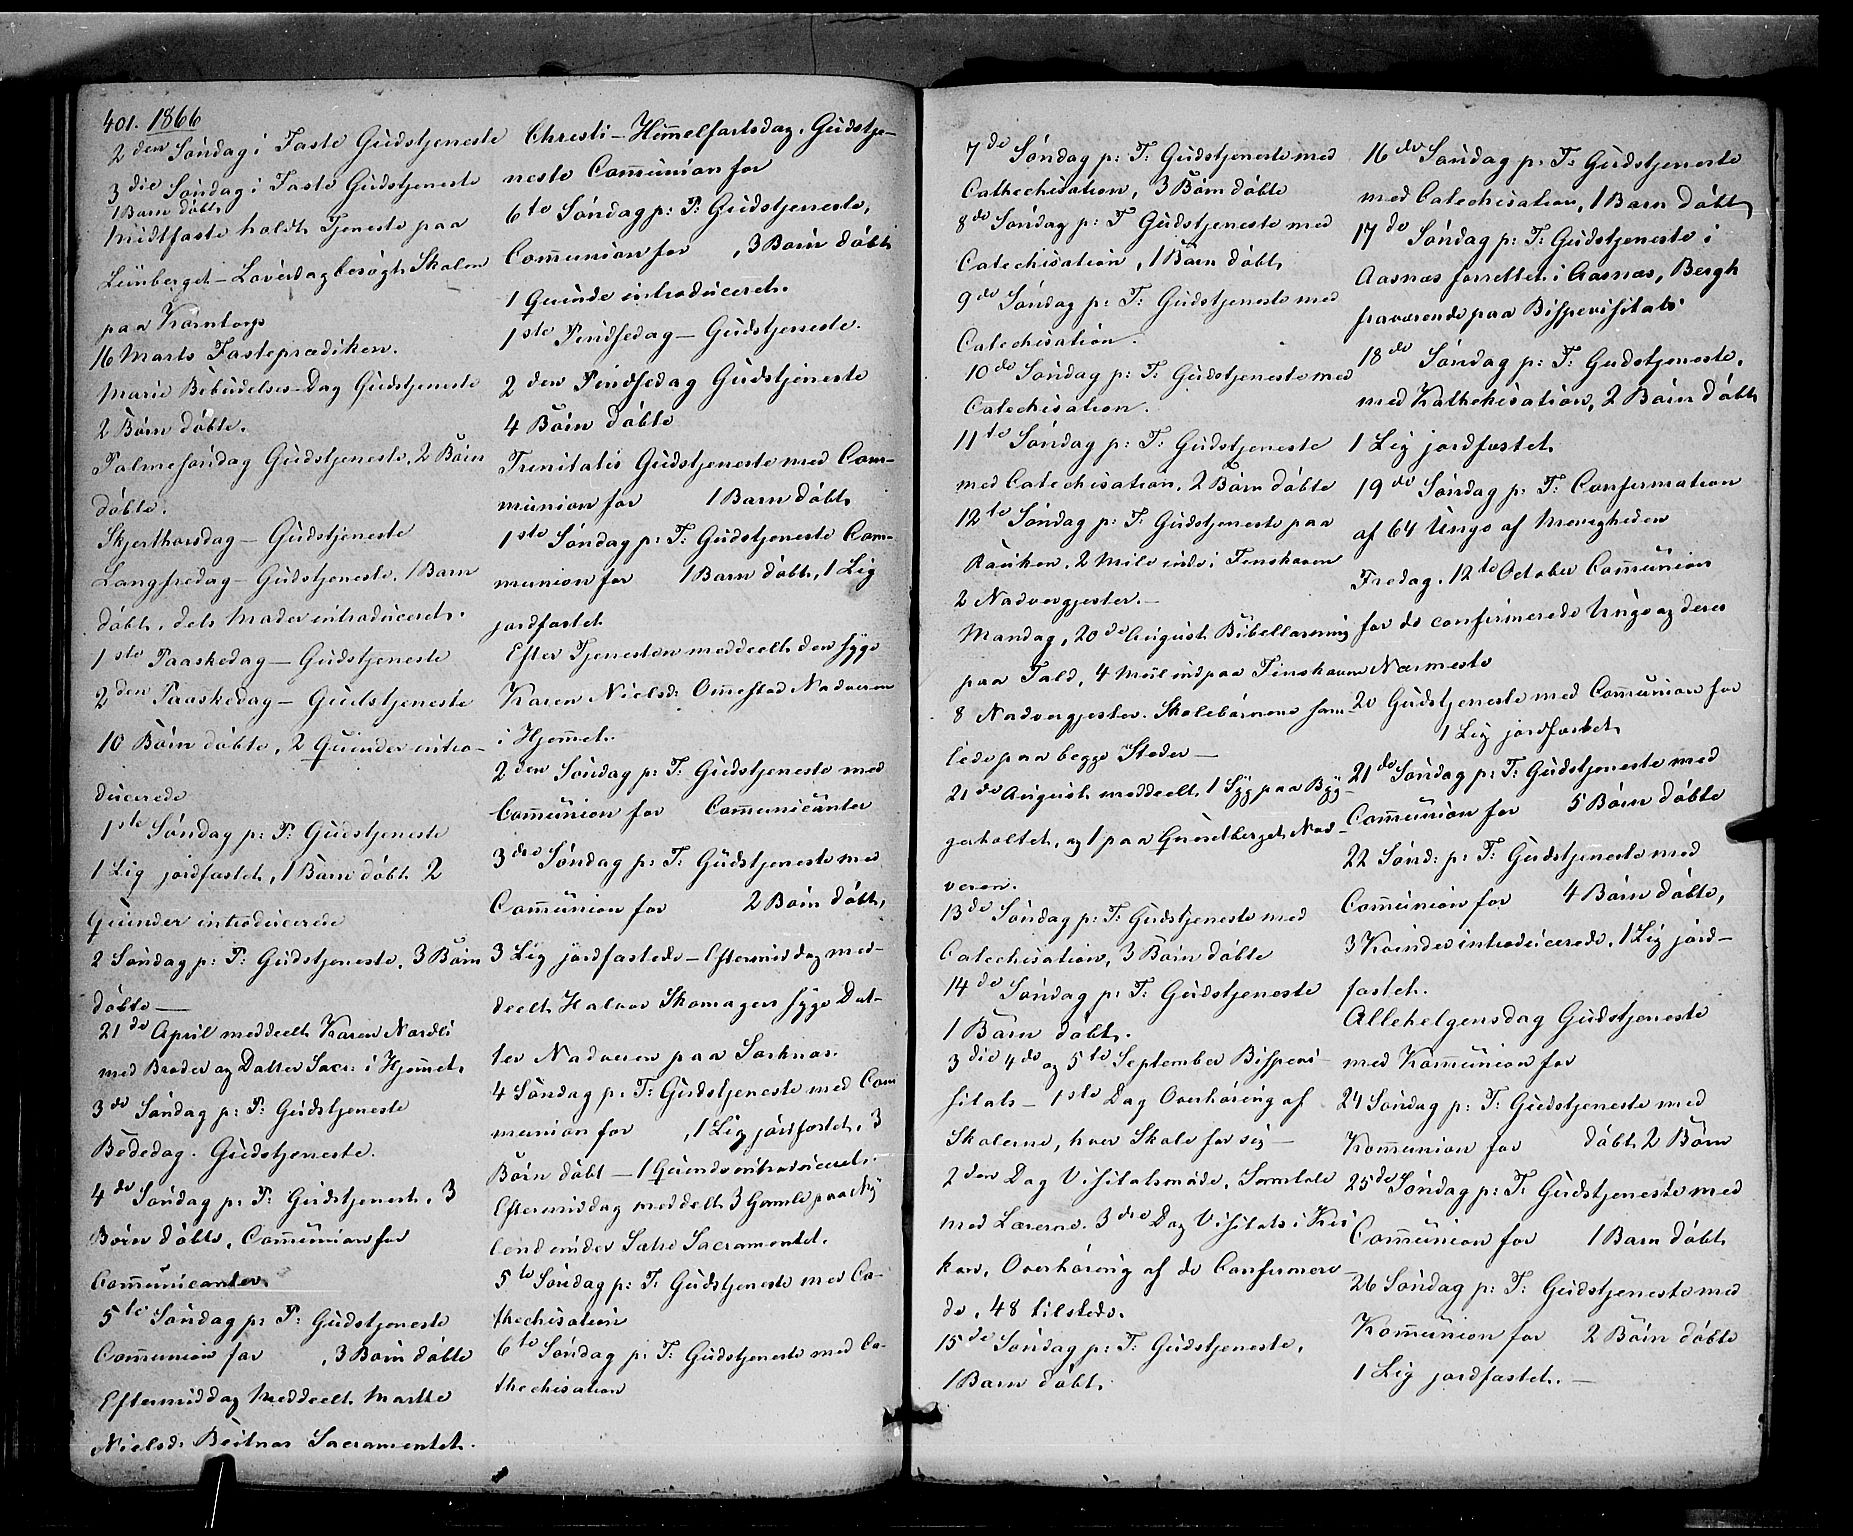 401. 1866
2den Søndag i Faste Gudstjeneste
3die Søndag i Faste Gudstjeneste
1 Barn døbt
Midtfaste holdt Tjeneste paa
Lünberget – Løverdag besøgt Skolen
paa Korntorp
16 Marts Fasteprædiken.
Marie Bebudelses-Dag Gudstjeneste
2 Børn døbte.
Palmesøndag Gudstjeneste, 2 Børn
døbte.
Skjerthorsdag – Gudstjeneste
Langfredag – Gudstjeneste, 1 Barn
døbt, dets Moder introduceret.
1ste Paaskedag – Gudstjeneste
2den Paaskedag – Gudstjeneste
10 Børn døbte, 2 Quinder intro-
ducerede
1ste Søndag p: P: Gudstjeneste
1 Lig jordfæstet, 1 Barn døbt 2
Quinder introducerede
2 Søndag p: P: Gudstjeneste, 3 Børn
døbte —
21de April meddeelt Karen Nordli
med Broder og Datter Sacr: i Hjemmet.
3de Søndag p: P: Gudstjeneste
Bededag. Gudstjeneste.
4de Søndag p: P: Gudstjenest, 3
Børn døbte, Communion for
Communicanter
5te Søndag p: P: Gudstjeneste
Communion for , 3 Børn døbte
Eftermiddag Meddeelt Marthe
Nielsd: Sacramentet.
Christi-Himmelfartsdag, Gudstje-
neste Communion for
6te Søndag p: P: Gudstjeneste,
Communion for , 3 Børn døbt
1 Quinde introduceret.
1ste Pindsedag – Gudstjeneste.
2den Pindsedag Gudstjeneste
4 Børn døbte
Trinitatis Gudstjeneste med Com-
munion for 1 Barn døbt,
1ste Søndag p: T: Gudstjeneste Com-
munion for 1 Barn døbt, 1 Lig
jordfæstet
Efter Tjenesten meddeelt den syge
Karen Nielsd: Ommestad Nadveren
i Hjemmet.
2den Søndag p: T: Gudstjeneste med
Communion for Communicanter
3die Søndag p: T: Gudstjeneste med
Communion for 2 Børn døbt,
3 Lig jordfæstede – Eftermiddag med-
deelt Halvor Skomagers syge Dat-
ter Nadveren paa Sorknæs.
4 Søndag p: T: Gudstjeneste med Com
munion for , 1 Lig jordfæstet, 3
Børn døbt – 1 Quinde introduceret.
Eftermiddag meddelt 3 Gamle paa Ny
lend under Sætre Sacramentet.
5te Søndag p: T: Gudstjeneste med Ca-
thechisation
6te Søndag p: T: Gudstjeneste med Ca-
thechisation
7de Søndag p: T: Gudstjeneste med
Cathechisation, 3 Børn døbte
8de Søndag p: T Gudstjeneste med
Catechisation, 1 Barn døbt,
9de Søndag p: T: Gudstjeneste med
Catechisation.
10de Søndag p: T: Gudstjeneste med
Catechisation.
11te Søndag p: T: Gudstjeneste
med Catechisation, 2 Børn døbte
12te Søndag p: T: Gudstjeneste paa
2 Mile inde i Finskoven
2 Nadvergjester. –
Mandag, 20de August Bibellæsning
paa Fald, 4 Miil ind paa Finskoven
8 Nadvergjester. Skolebørnene sam-
lede paa begge Steder —
21de August meddeelt 1 Syg paa Byg-
geholtet, og 1 paa Nad-
veren.
13de Søndag p: T: Gudstjeneste med
Catechisation, 3 Børn døbte
14de Søndag p: T: Gudstjeneste
1 Barn døbt.
3die 4de og 5te September Bispevi-
sitats – 1ste Dag Overhøring af
Skolerne, hver Skole for sig –
2den Dag Visitatsmøde, Samtale
med Lærerne. 3die Dag Visitats i Kir
ken, Overhøring af de Confirmere-
de, 48 tilstede.
15de Søndag p: T: Gudstjeneste,
1 Barn døbt.
16de Søndag p: T: Gudstjeneste
med Catechisation, 1 Barn døbt
17de Søndag p: T: Gudstjeneste i
Aasnæs forrettet i Aasnæs, Bergh
fraværende paa Bispevisitats
18de Søndag p: T: Gudstjeneste,
med Kathekisation, 2 Børn døbt
1 Lig jordfæstet
19de Søndag p: T: Confirmation
af 64 Unge af Menigheden
Fredag, 12te October Communion
for de confirmerede Unge og deres
Nærmeste
20 Gudstjeneste med Communion for
1 Lig jordfæstet
21de Søndag p: T: Gudstjeneste med
Communion for 5 Børn døbte
22 Sønd: p: T: Gudstjeneste med
Communion for 4 Børn døbte,
3 Kvinder introducerede, 1 Lig jord-
fæstet.
Allehelgensdag Gudstjeneste
med Kommunion for
24 Søndag p: T: Gudstjeneste med
Kommunion for døbt 2 Børn
25de Søndag p: T: Gudstjeneste med
Communion for 1 Barn døbt
26 Søndag p: T: Gudstjeneste med
Kommunion for 2 Børn døbte
1 Lig jordfæstet. —